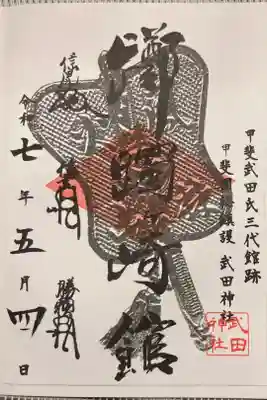 甲斐武田氏三代館跡
甲斐國総鎮護 武田神社
武田神社
躑躅ヶ崎館
信虎
勝頼
令和七年五月四日